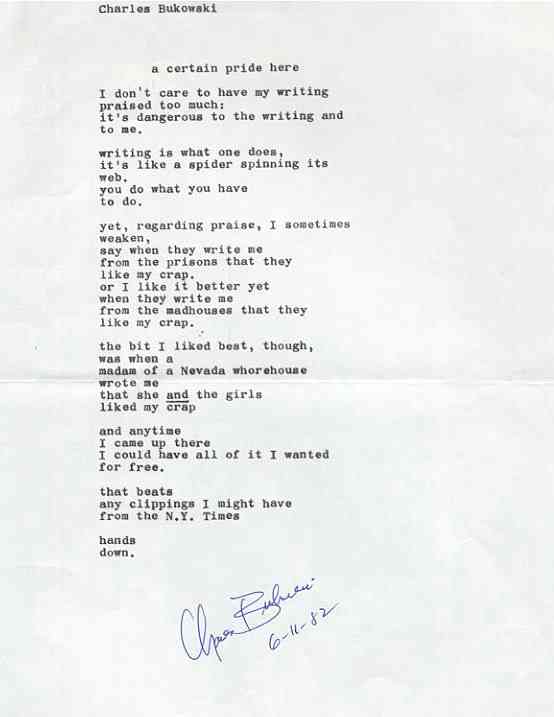 Charles Bukowski
a certain pride here
I don't care to have my writing
praised too much:
it's dangerous to the writing and
to me.
writing is what one does,
it's like a spider spinning its
web.
you do what you have
to do.
yet, regarding praise, I sometimes
weaken,
say when they write me
from the prisons that they
like my crap.
or I like it better yet
when they write me
from the madhouses that they
like my crap.
the bit I liked best, though,
was when a
madam of a Nevada whorehouse
wrote me
that she and the girls
liked my crap
and anytime
I came up there
I could have all of it I wanted
for free.
that beats
any clippings I might have
from the N.Y. Times
hands
down.
6-11-82